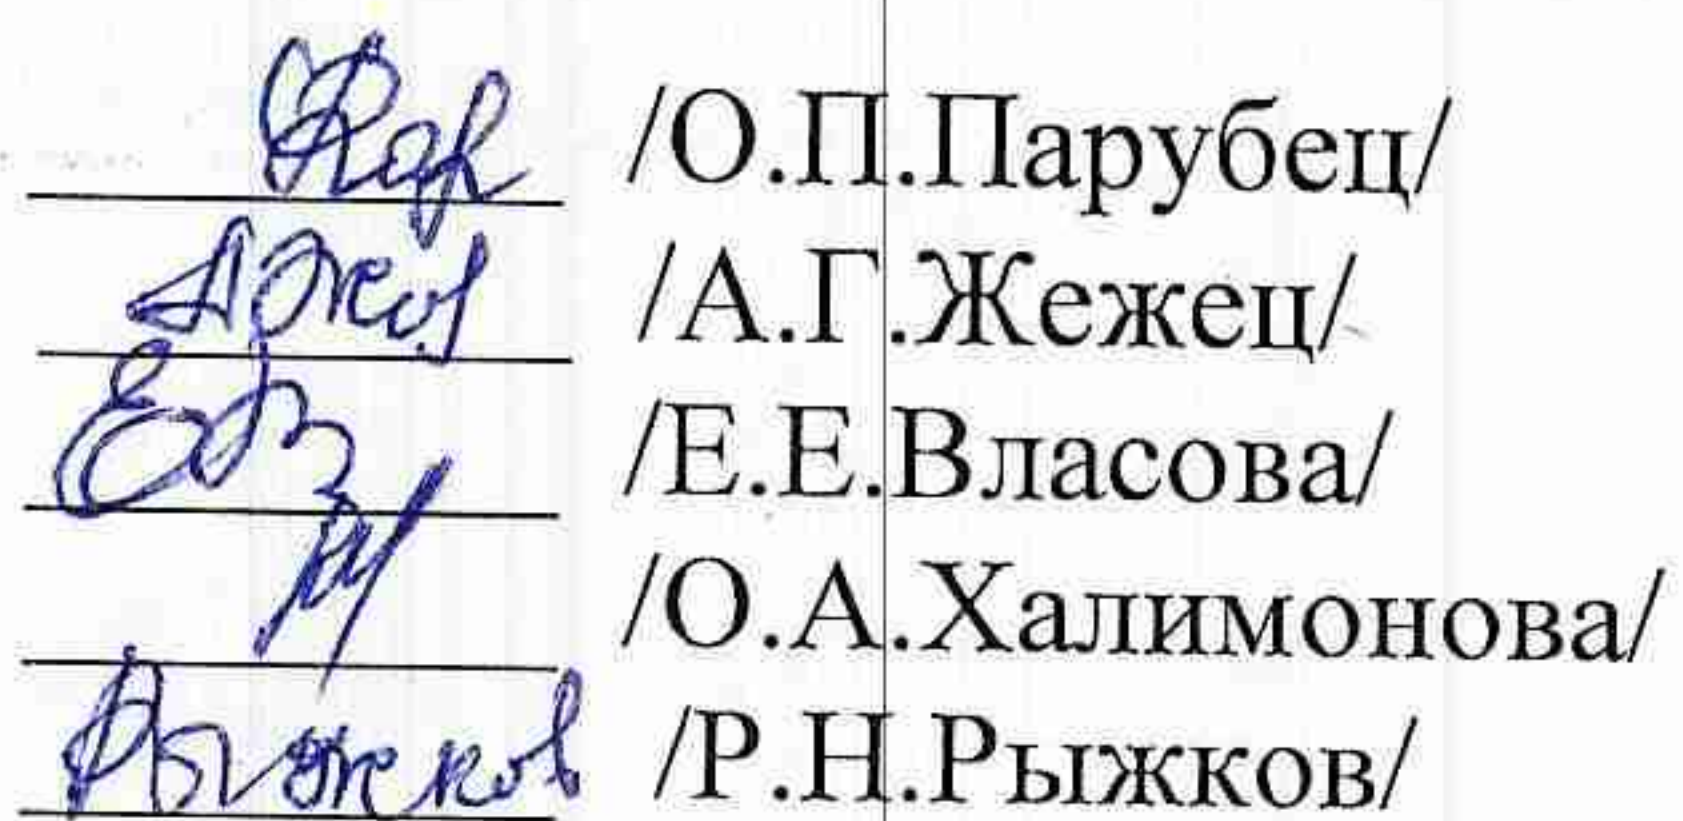 /О.П.Парубец/
/А.Г.Жежец/
/Е.Е.Власова/
/О.А.Халимонова/
Рыжков /Р.Н.Рыжков/